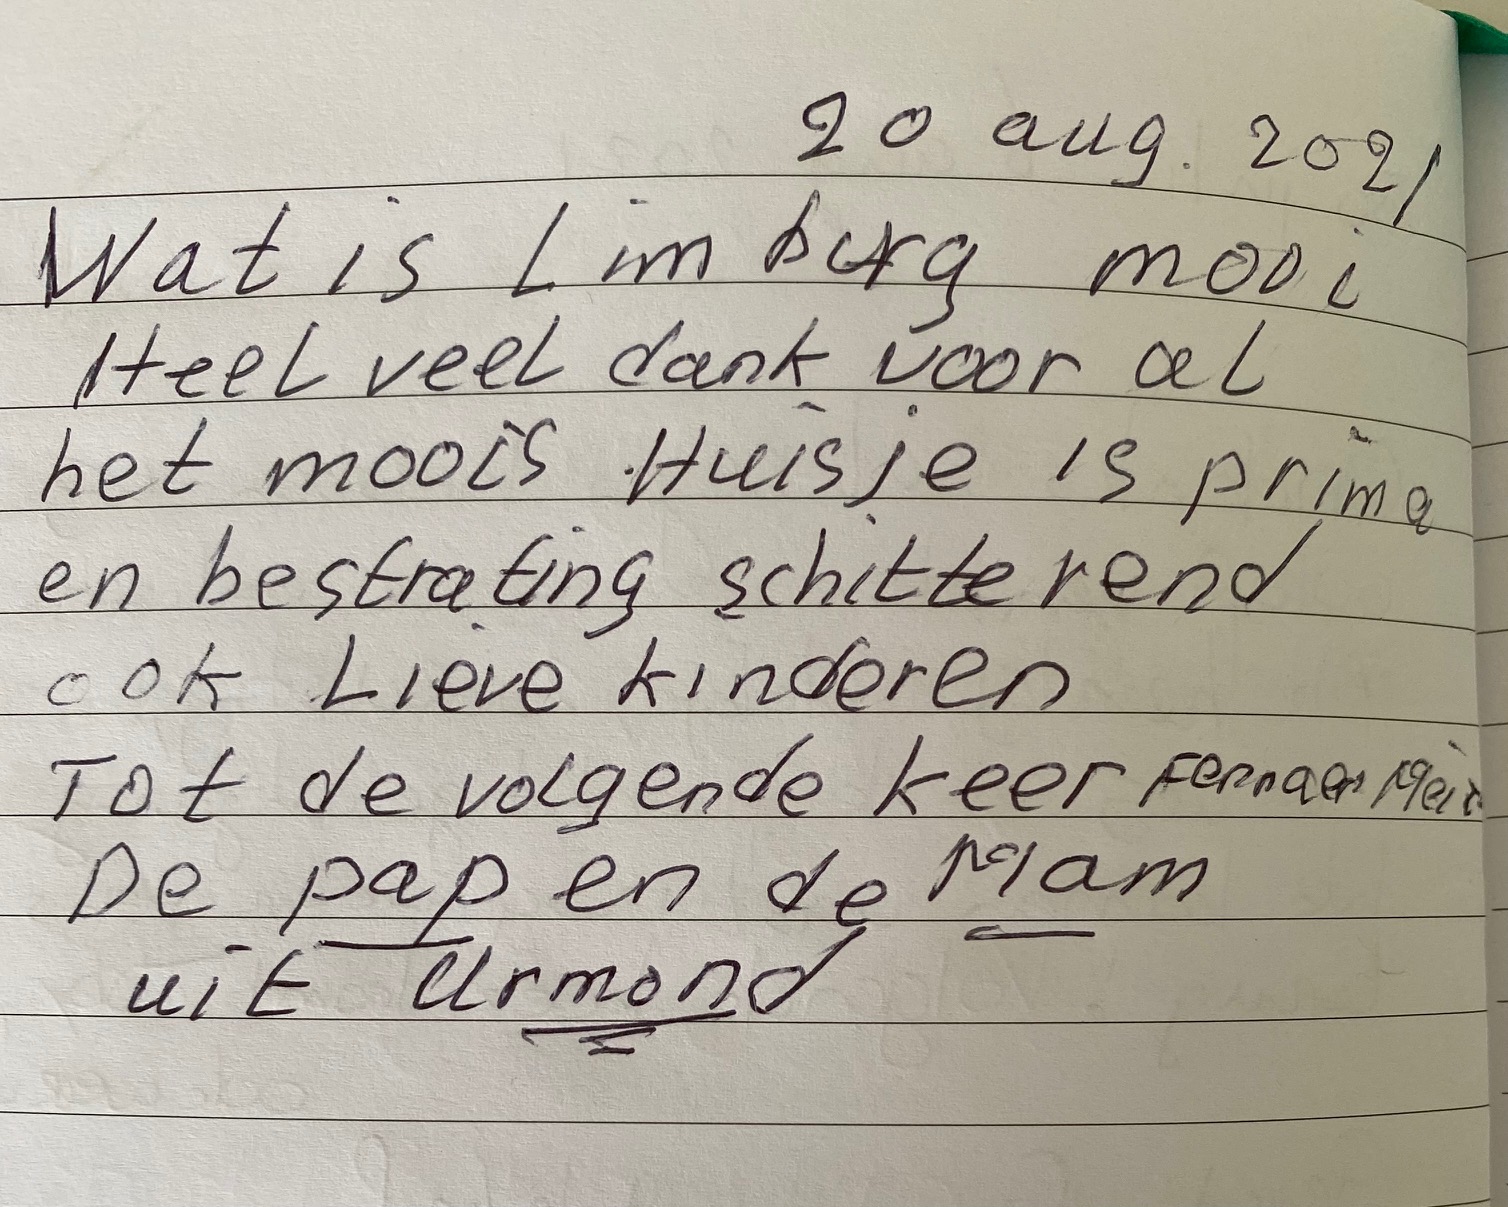 20 aug. 2021
Wat is Limburg mooi
Heel veel dank voor al
het moois Huisje is prima
en bestrating schitterend
ook Lieve kinderen
Tot de volgende keer
De pap en de Mam
uit Urmond